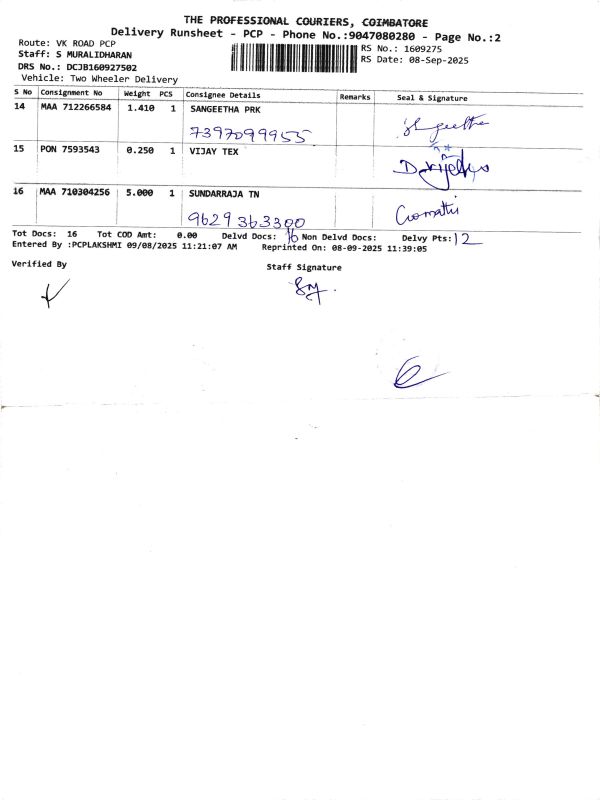 THE PROFESSIONAL COURIERS, COIMBATORE
Delivery Runsheet - PCP - Phone No.:9047080280 - Page No.:2
Route: VK ROAD PCP
Staff: S MURALIDHARAN
DRS No.: DCJB160927502
Vehicle: Two Wheeler Delivery
RS No.: 1609275
RS Date: 08-Sep-2025
S No Consignment No Weight PCS Consignee Details Remarks Seal & Signature
14 MAA 712266584 1.410 1 SANGEETHA PRK
7397099955
15 PON 7593543 0.250 1 VIJAY TEX
16 MAA 710304256 5.000 1 SUNDARRAJA TN
9629363300 Gomathi
Tot Docs: 16 Tot COD Amt: 0.00 Delvd Docs: 16 Non Delvd Docs: Delvy Pts: 12
Entered By :PCPLAKSHMI 09/08/2025 11:21:07 AM Reprinted On: 08-09-2025 11:39:05
Verified By
Staff Signature